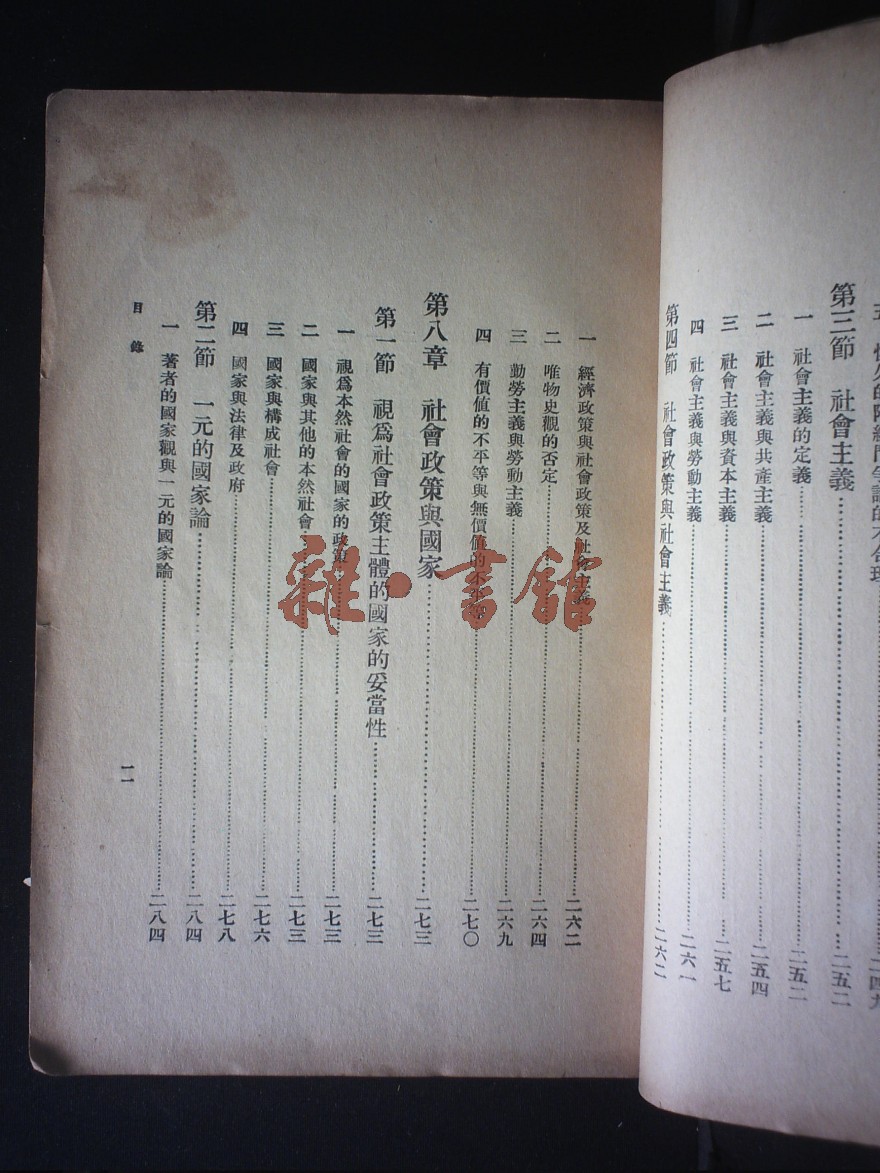 第三節　社會主義……二五二
一　社會主義的定義……二五二
二　社會主義與共產主義……二五四
三　社會主義與資本主義……二五七
四　社會主義與勞動主義……二六一
第四節　社會政策與社會主義……二六二
一　經濟政策與社會政策及社會主義……二六二
二　唯物史觀的否定……二六四
三　勤勞主義與勞動主義……二六九
四　有價值的不平等與無價值的不平等……二七〇
第八章　社會政策與國家……二七三
第一節　視爲社會政策主體的國家的妥當性……二七三
一　視爲本然社會的國家的政策……二七三
二　國家與其他的本然社會……二七三
三　國家與構成社會……二七六
四　國家與法律及政府……二七八
第二節　一元的國家論……二八四
一　著者的國家觀與一元的國家論……二八四
目錄
一一
雜·書館